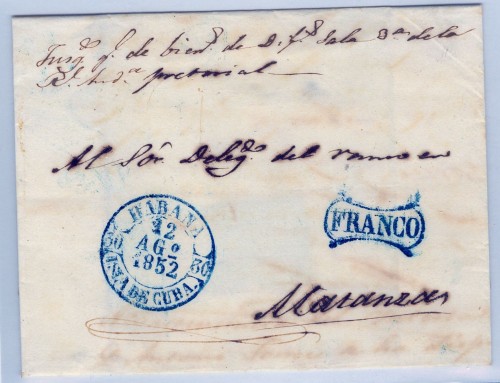 Juzgº gl. de bienˢ de D.fᵗˢ Sala 3ª de la
Rl. Audª pretorial
Al Sór. Delegdº del ramo en
HABANA
12
AGº
1852
30 30
ISLA DE CUBA.
FRANCO
Matanzas